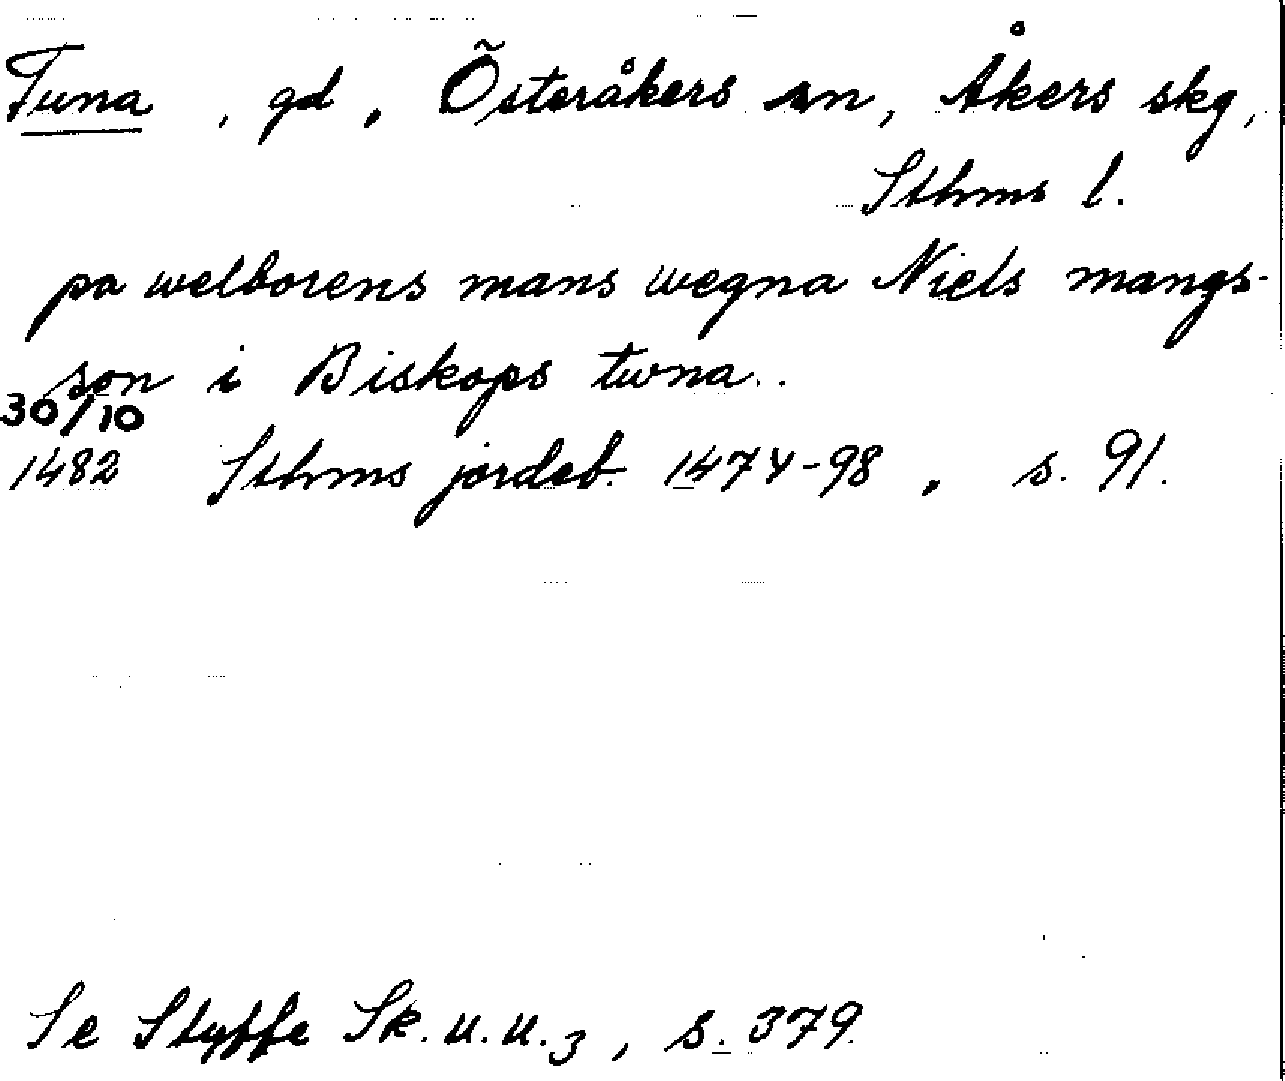 Tuna, gd, Österåkers sn, Åkers skg,
Sthms l.
pa welborens mans wegna Niels mangs-
son i Biskops twna..
30/10
1482 Sthms jordeb. 1474-98, s. 91.
Se Styffe Sk. u. u.3, s. 379.